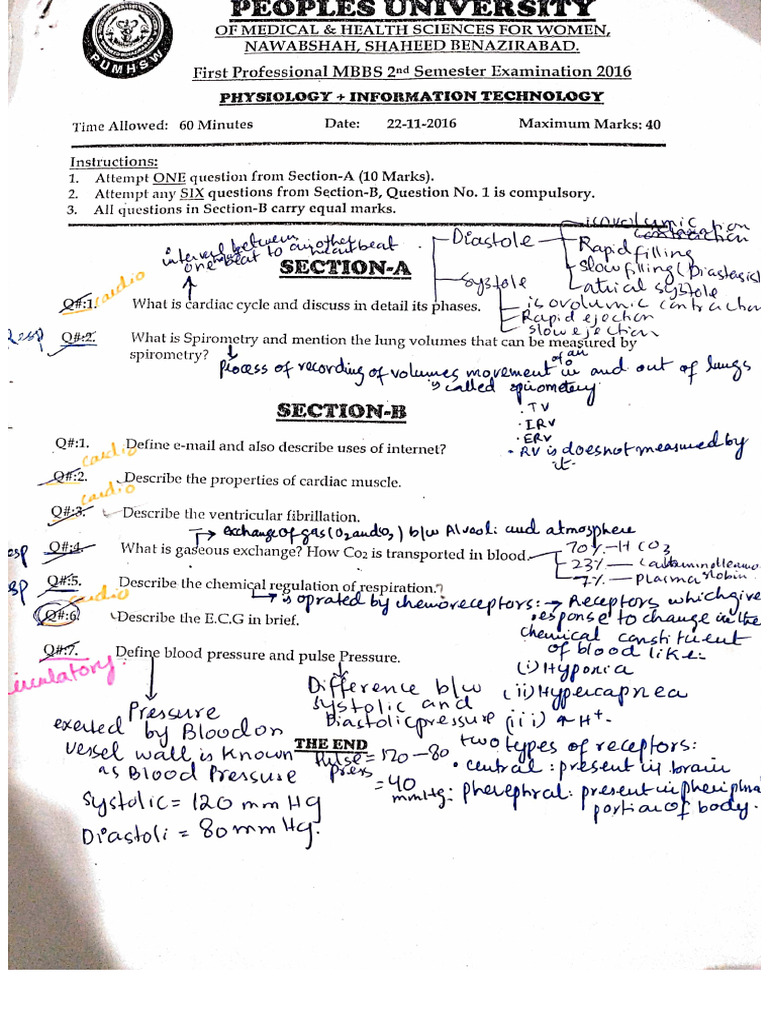 PEOPLES UNIVERSITY
OF MEDICAL & HEALTH SCIENCES FOR WOMEN,
NAWABSHAH, SHAHEED BENAZIRABAD.
PUMHSW
First Professional MBBS 2nd Semester Examination 2016
PHYSIOLOGY + INFORMATION TECHNOLOGY
Time Allowed: 60 Minutes Date: 22-11-2016 Maximum Marks: 40
Instructions:
1. Attempt ONE question from Section-A (10 Marks).
2. Attempt any SIX questions from Section-B, Question No. 1 is compulsory.
3. All questions in Section-B carry equal marks.
interval between
one beat to another
heart beat
Diastole
isovolumic
Rapid filling
slow filling (Diastasis)
atrial systole
Systole
isovolumic contraction
Rapid ejection
slow ejection
SECTION-A
cardio
Q#:1. What is cardiac cycle and discuss in detail its phases.
Resp
Q#:2. What is Spirometry and mention the lung volumes that can be measured by
spirometry?
process of recording of volumes movement of air in and out of lungs
is called spirometery
• TV
• IRV
• ERV
• RV is doesnot measured by
it.
SECTION-B
Q#:1. Define e-mail and also describe uses of internet?
cardio
Q#:2. Describe the properties of cardiac muscle.
cardio
Q#:3. Describe the ventricular fibrillation.
exchange of gas (O2 and O2) b/w Alveoli and atmosphere
esp
Q#:4. What is gaseous exchange? How Co2 is transported in blood.
70% - HCO3
23% -
7% - plasma
sp
Q#:5. Describe the chemical regulation of respiration.?
is oprated by chemoreceptors: → Receptors which give
response to change in the
chemical constituent
of blood like:-
(i) Hypoxia
(ii) Hypercapnea
(iii) ↑ H+.
cardio
Q#:6. Describe the E.C.G in brief.
Q#:7. Define blood pressure and pulse Pressure.
irculatory
Pressure
exerted by Blood on
vessel wall is known
as Blood Pressure
Systolic = 120 mm Hg
Diastoli = 80 mm Hg.
Difference b/w
systolic and
Diastolic pressure
THE END
Pulse = 120 - 80
press = 40
mmHg.
two types of receptors:
• central : present in brain
• pherephral : present in pheriphral
portion of body.